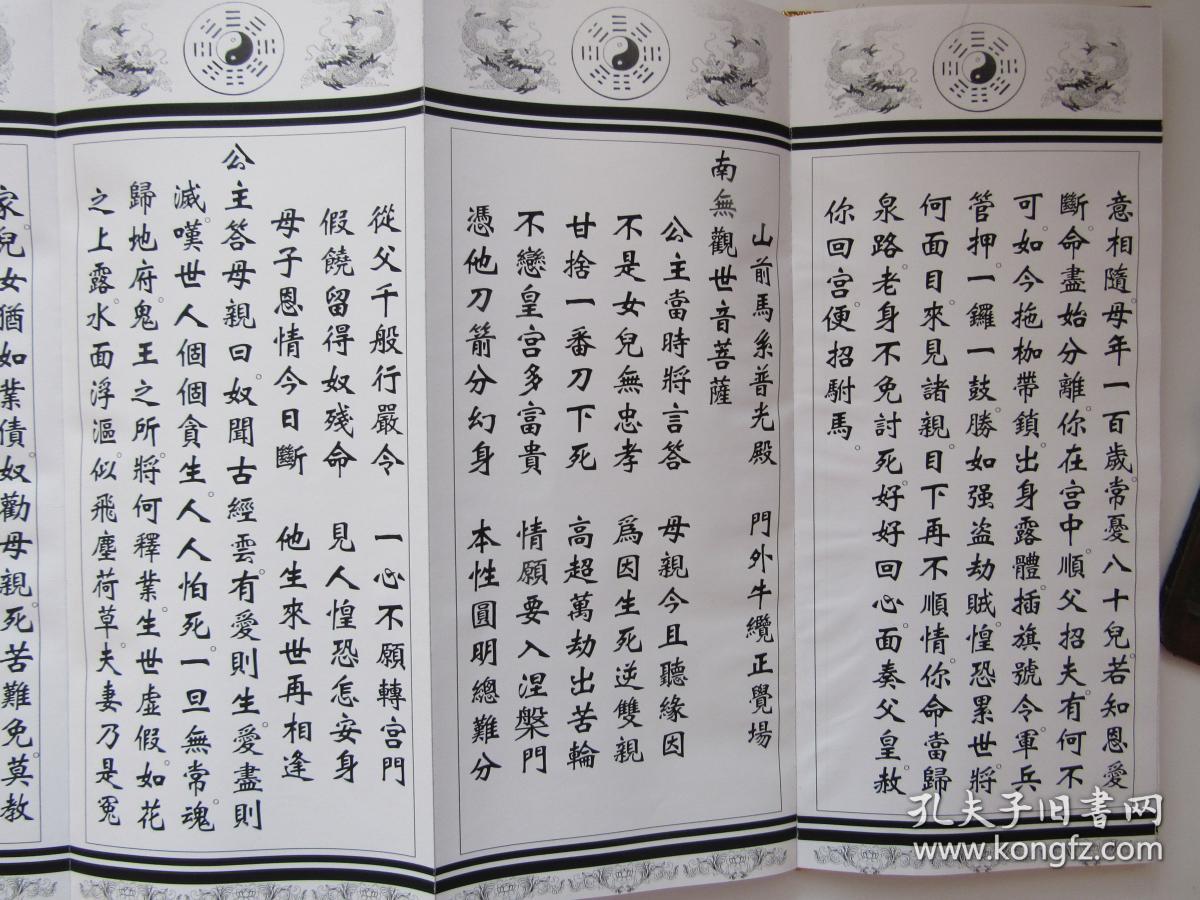 意相隨。母年一百歲。常憂八十兒。若知恩愛
斷。命盡始分離。你在宫中。順父招夫。有何不
可。如今拖枷帶鎖。出身露體。插旗號令。軍兵
管押。一鑼一鼓。勝如强盗劫賊。惶恐累世。將
何面目。來見諸親。目下再不順情。你命當歸
泉路。老身不免討死。好好回心。面奏父皇。赦
你回宫。便招駙馬。
山前馬系普光殿　門外牛纜正覺場
南無觀世音菩薩
公主當時將言答　母親今且聽緣因
不是女兒無忠孝　爲因生死逆雙親
甘捨一番刀下死　高超萬劫出苦輪
不戀皇宫多富貴　情願要入涅槃門
憑他刀箭分幻身　本性圓明總難分
從父千般行嚴令　一心不願轉宫門
假饒留得奴殘命　見人惶恐怎安身
母子恩情今日斷　他生來世再相逢
公主答母親曰。奴聞古經雲。有愛則生。愛盡則
滅。嘆世人個個貪生。人人怕死。一旦無常。魂
歸地府。鬼王之所。將何釋業。生世虚假。如花
之上露。水面浮漚。似飛塵荷草。夫妻乃是冤
家。兒女猶如業債。奴勸母親。死苦難免。莫教
孔夫子旧書网
www.kongfz.com